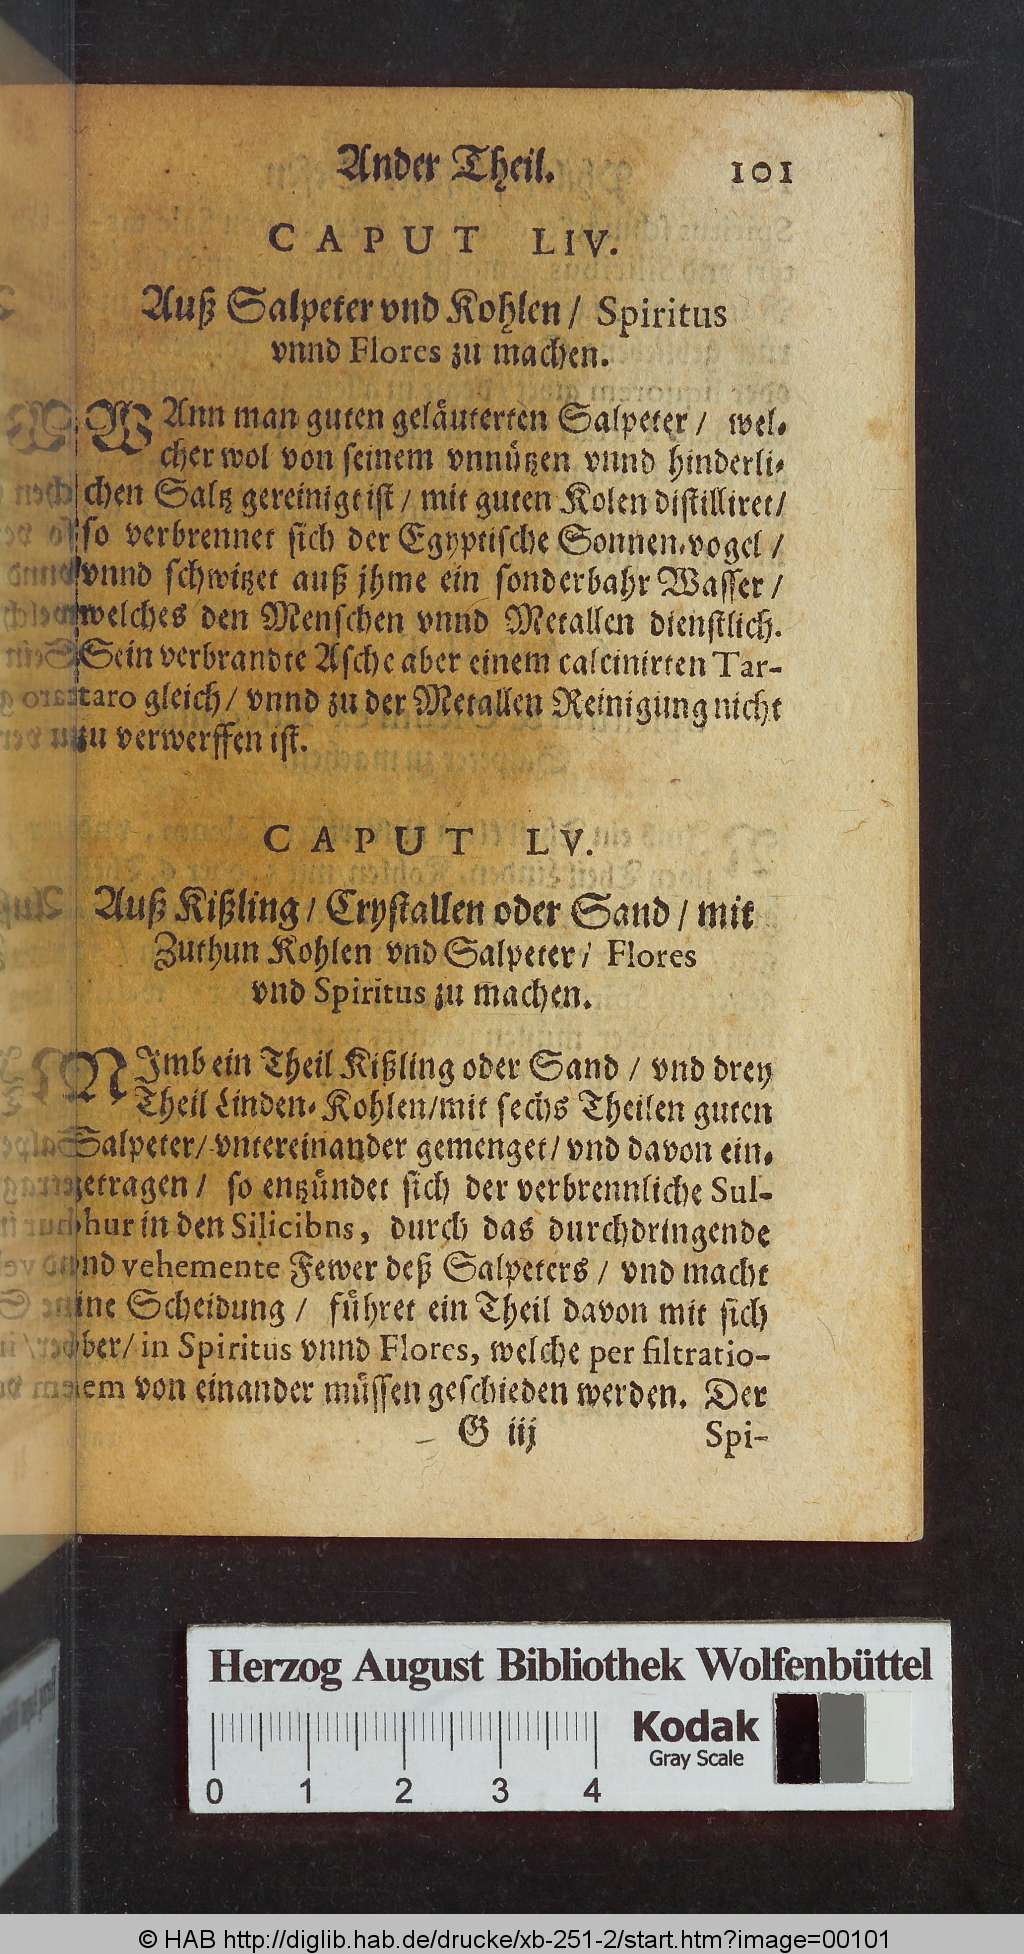 Ander Theil. 101
CAPUT LIV.
Auß Salpeter vnd Kohlen / Spiritus
vnnd Flores zu machen.
WAnn man guten geläuterten Salpeter / wel-
cher wol von seinem vnnützen vnnd hinderli-
chen Saltz gereinigt ist / mit guten Kolen distilliret /
so verbrennet sich der Egyptische Sonnen-vogel /
vnnd schwitzet auß jhme ein sonderbahr Wasser /
welches den Menschen vnnd Metallen dienstlich.
Sein verbrandte Asche aber einem calcinirten Tar-
taro gleich / vnnd zu der Metallen Reinigung nicht
zu verwerffen ist.
CAPUT LV.
Auß Kißling / Crystallen oder Sand / mit
Zuthun Kohlen vnd Salpeter / Flores
vnd Spiritus zu machen.
NImb ein Theil Kißling oder Sand / vnd drey
Theil Linden-Kohlen / mit sechs Theilen guten
Salpeter / vntereinander gemenget / vnd davon ein-
getragen / so entzündet sich der verbrennliche Sul-
phur in den Silicibns, durch das durchdringende
vnd vehemente Fewer deß Salpeters / vnd macht
eine Scheidung / führet ein Theil davon mit sich
vber / in Spiritus vnnd Flores, welche per filtratio-
nem von einander müssen geschieden werden. Der
G iij Spi-
Herzog August Bibliothek Wolfenbüttel
Kodak
Gray Scale
0 1 2 3 4
© HAB http://diglib.hab.de/drucke/xb-251-2/start.htm?image=00101